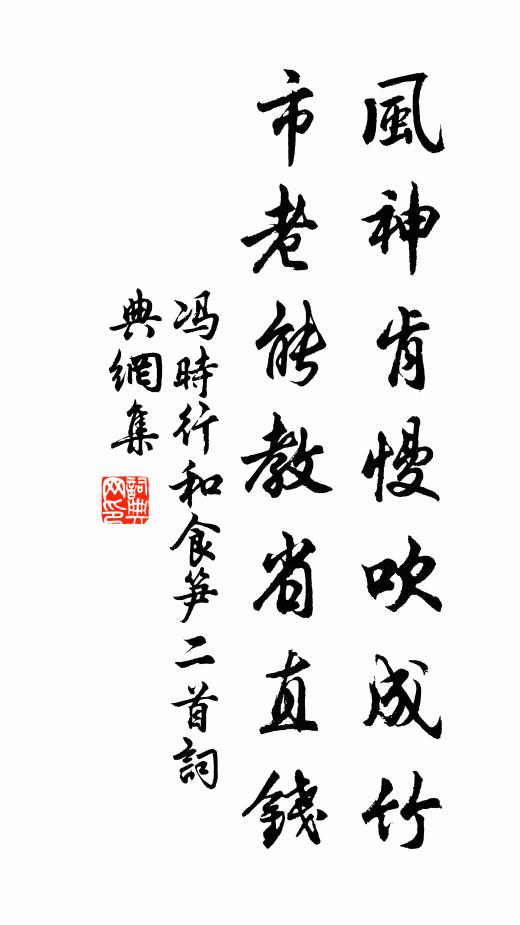 風神肯慢吹成竹
市老能教省直錢
冯時行和食笋二首詞
典網集
詞典网印